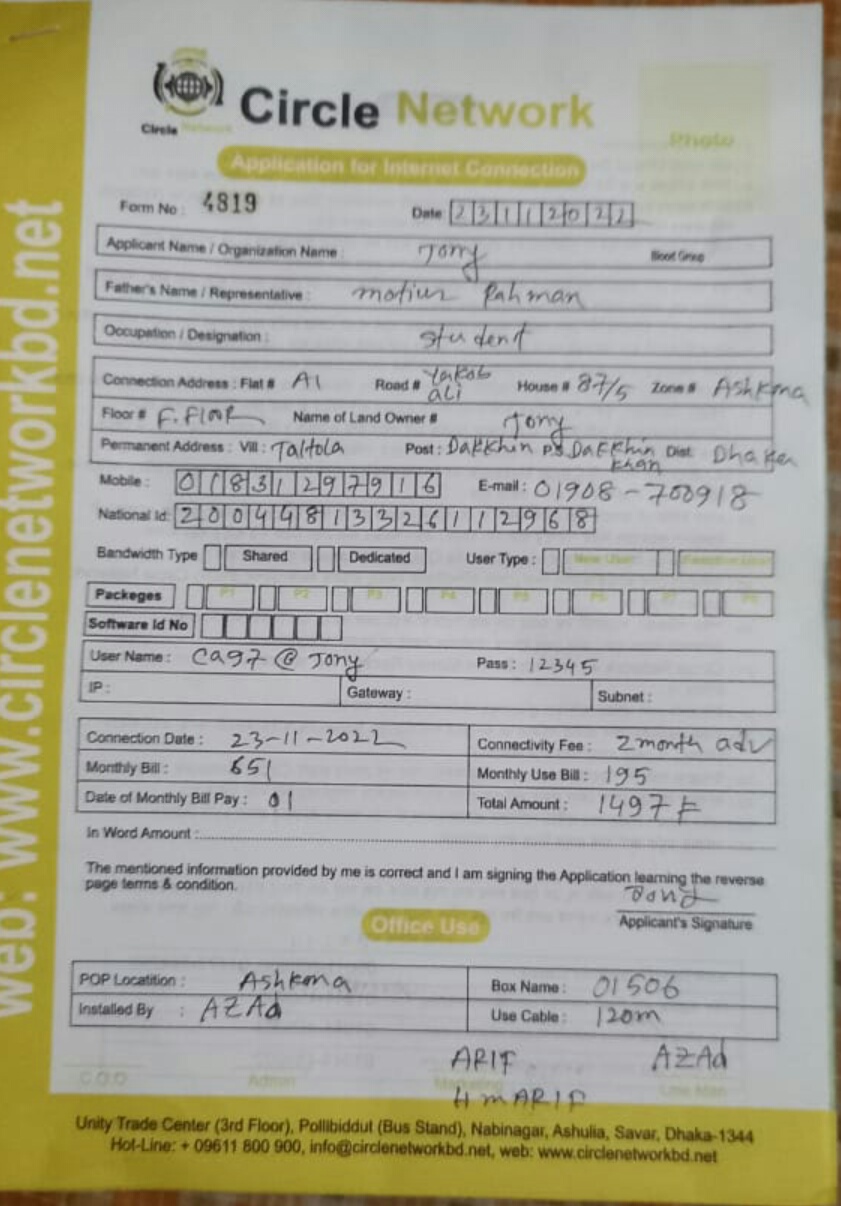 Circle Network
Circle Network
Photo
Application for Internet Connection
Form No : 4819 Date 23112022
Applicant Name / Organization Name : Tony Blood Group
Father's Name / Representative : motiur Rahman
Occupation / Designation : student
Connection Address : Flat # A1 Road # Yakob ali House # 87/5 Zone # Ashkona
Floor # F.Floor Name of Land Owner # Tony
Permanent Address : Vill : Taltola Post : Dakkhin P.S. Dakkhin khan Dist Dhaka
Mobile : 01831297916 E-mail : 01908-700918
National Id: 20044813326112968
Bandwidth Type Shared Dedicated User Type : New User
Packeges P1 P2 P3 P4 P5 P6 P7 P8
Software Id No
User Name : ca97 @ Tony Pass : 12345
IP : Gateway : Subnet :
Connection Date : 23-11-2022 Connectivity Fee : 2 month adv
Monthly Bill : 651 Monthly Use Bill : 195
Date of Monthly Bill Pay : 01 Total Amount : 1497
In Word Amount :
The mentioned information provided by me is correct and I am signing the Application learning the reverse
page terms & condition.
Applicant's Signature
Office Use
POP Locatition : Ashkona Box Name : 01506
Installed By : AZAd Use Cable : 120m
ARIF AZAd
C.O.O Admin Marketing Line Man
ARIF
Unity Trade Center (3rd Floor), Pollibiddut (Bus Stand), Nabinagar, Ashulia, Savar, Dhaka-1344
Hot-Line: + 09611 800 900, info@circlenetworkbd.net, web: www.circlenetworkbd.net
web: www.circlenetworkbd.net